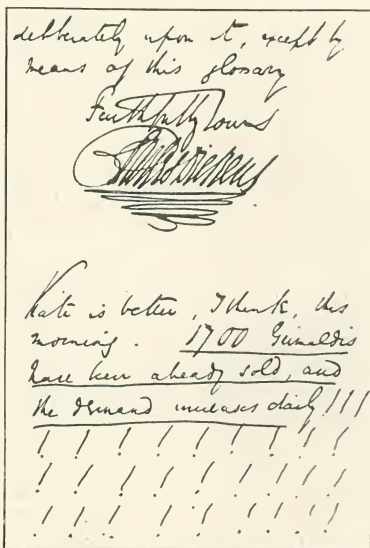 deliberately upon it, except by
means of this glossary
Faithfully Yours
Charles Dickens
Kate is better, I think, this
morning. 1700 Grimaldis
have been already sold, and
the demand increases daily!!!
! ! ! ! ! ! ! ! !
! ! ! ! ! ! ! ! !
! ! ! ! ! ! ! ! !